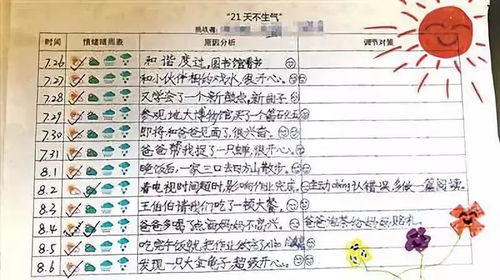 "21天不生气"
挑战者:
时间 情绪晴雨表 原因分析 调节对策
7.26 和谐度过,图书馆看书
7.27 和小伙伴相约戏水,很开心。
7.28 又学会了一个新鼓点,新曲子
7.29 参观地大博物馆买了个
7.30 即将和爸爸见面了,很兴奋。
7.31 爸爸帮我捉了一只蝉,很开心。
8.1 晚饭后,一家三口去四方山散步。
8.2 看电视时间超时,影响作业完成, 主动 认错误,多做一篇阅读。
8.3 王伯伯请我们吃了一顿大餐,
8.4 爸爸多喝了点酒妈妈不高兴, 爸爸泡茶给妈妈赔礼。
8.5 吃完午饭就把作业做完了
8.6 发现一只大金龟子,超级开心。